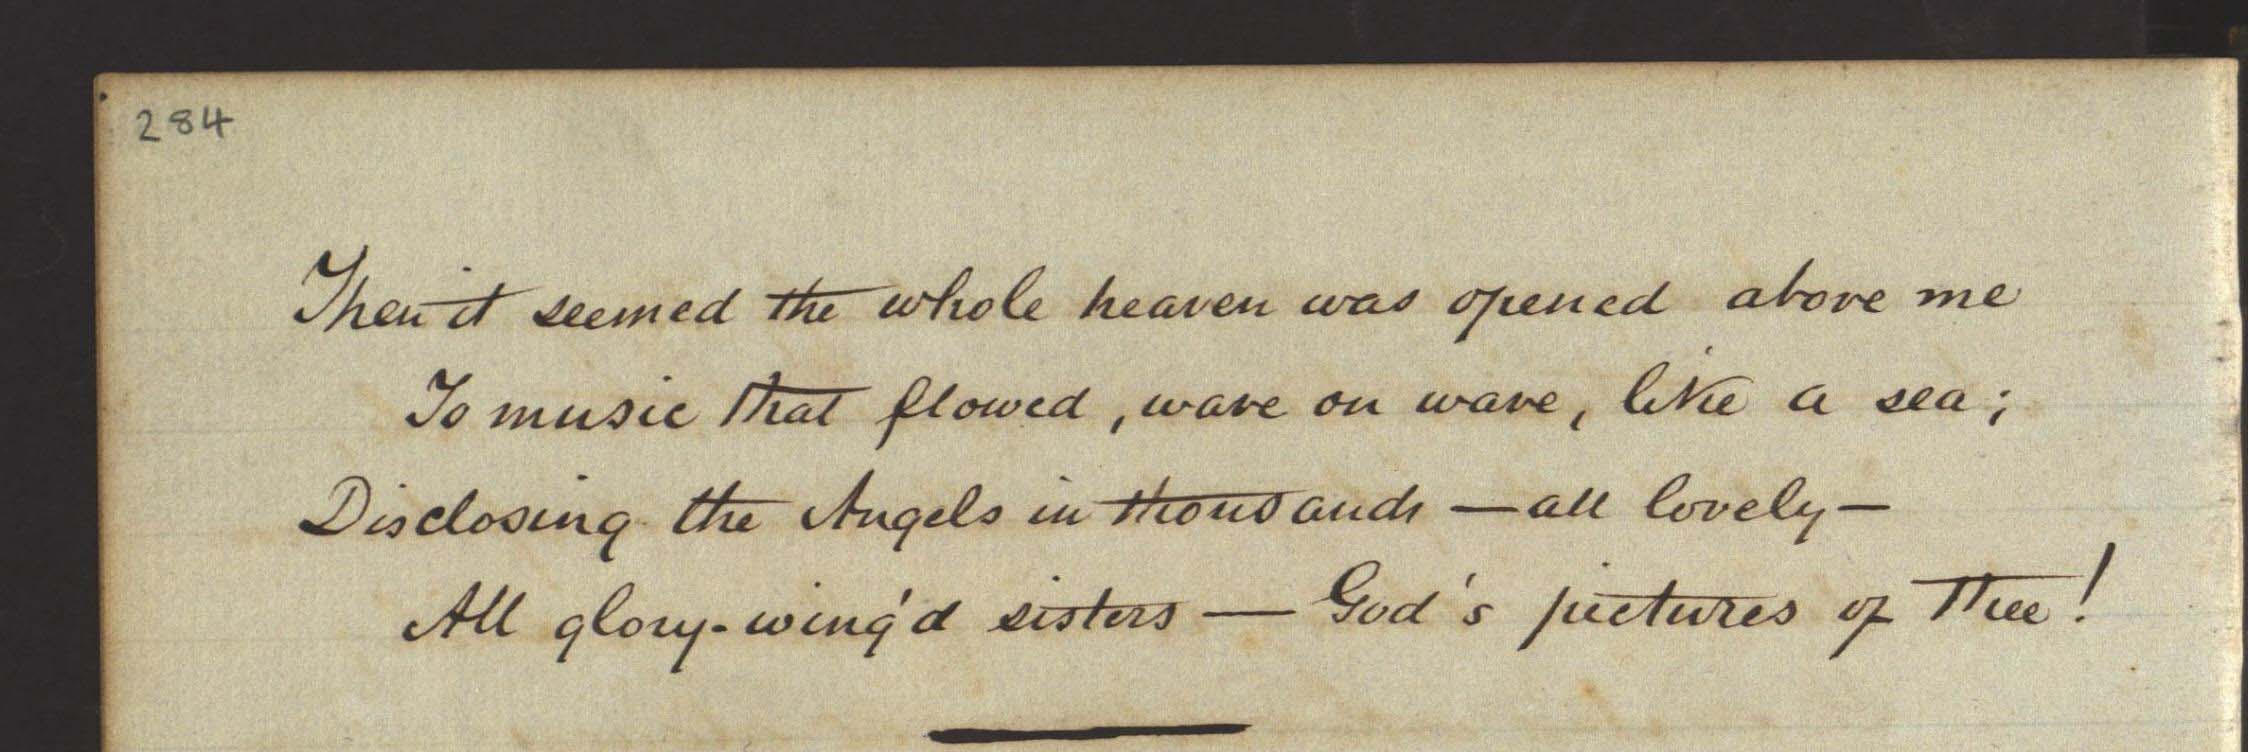 284
Then it seemed the whole heaven was opened above me
To music that flowed, wave on wave, like a sea;
Disclosing the Angels in thousands — all lovely —
All glory-wing'd sisters — God's pictures of Thee!